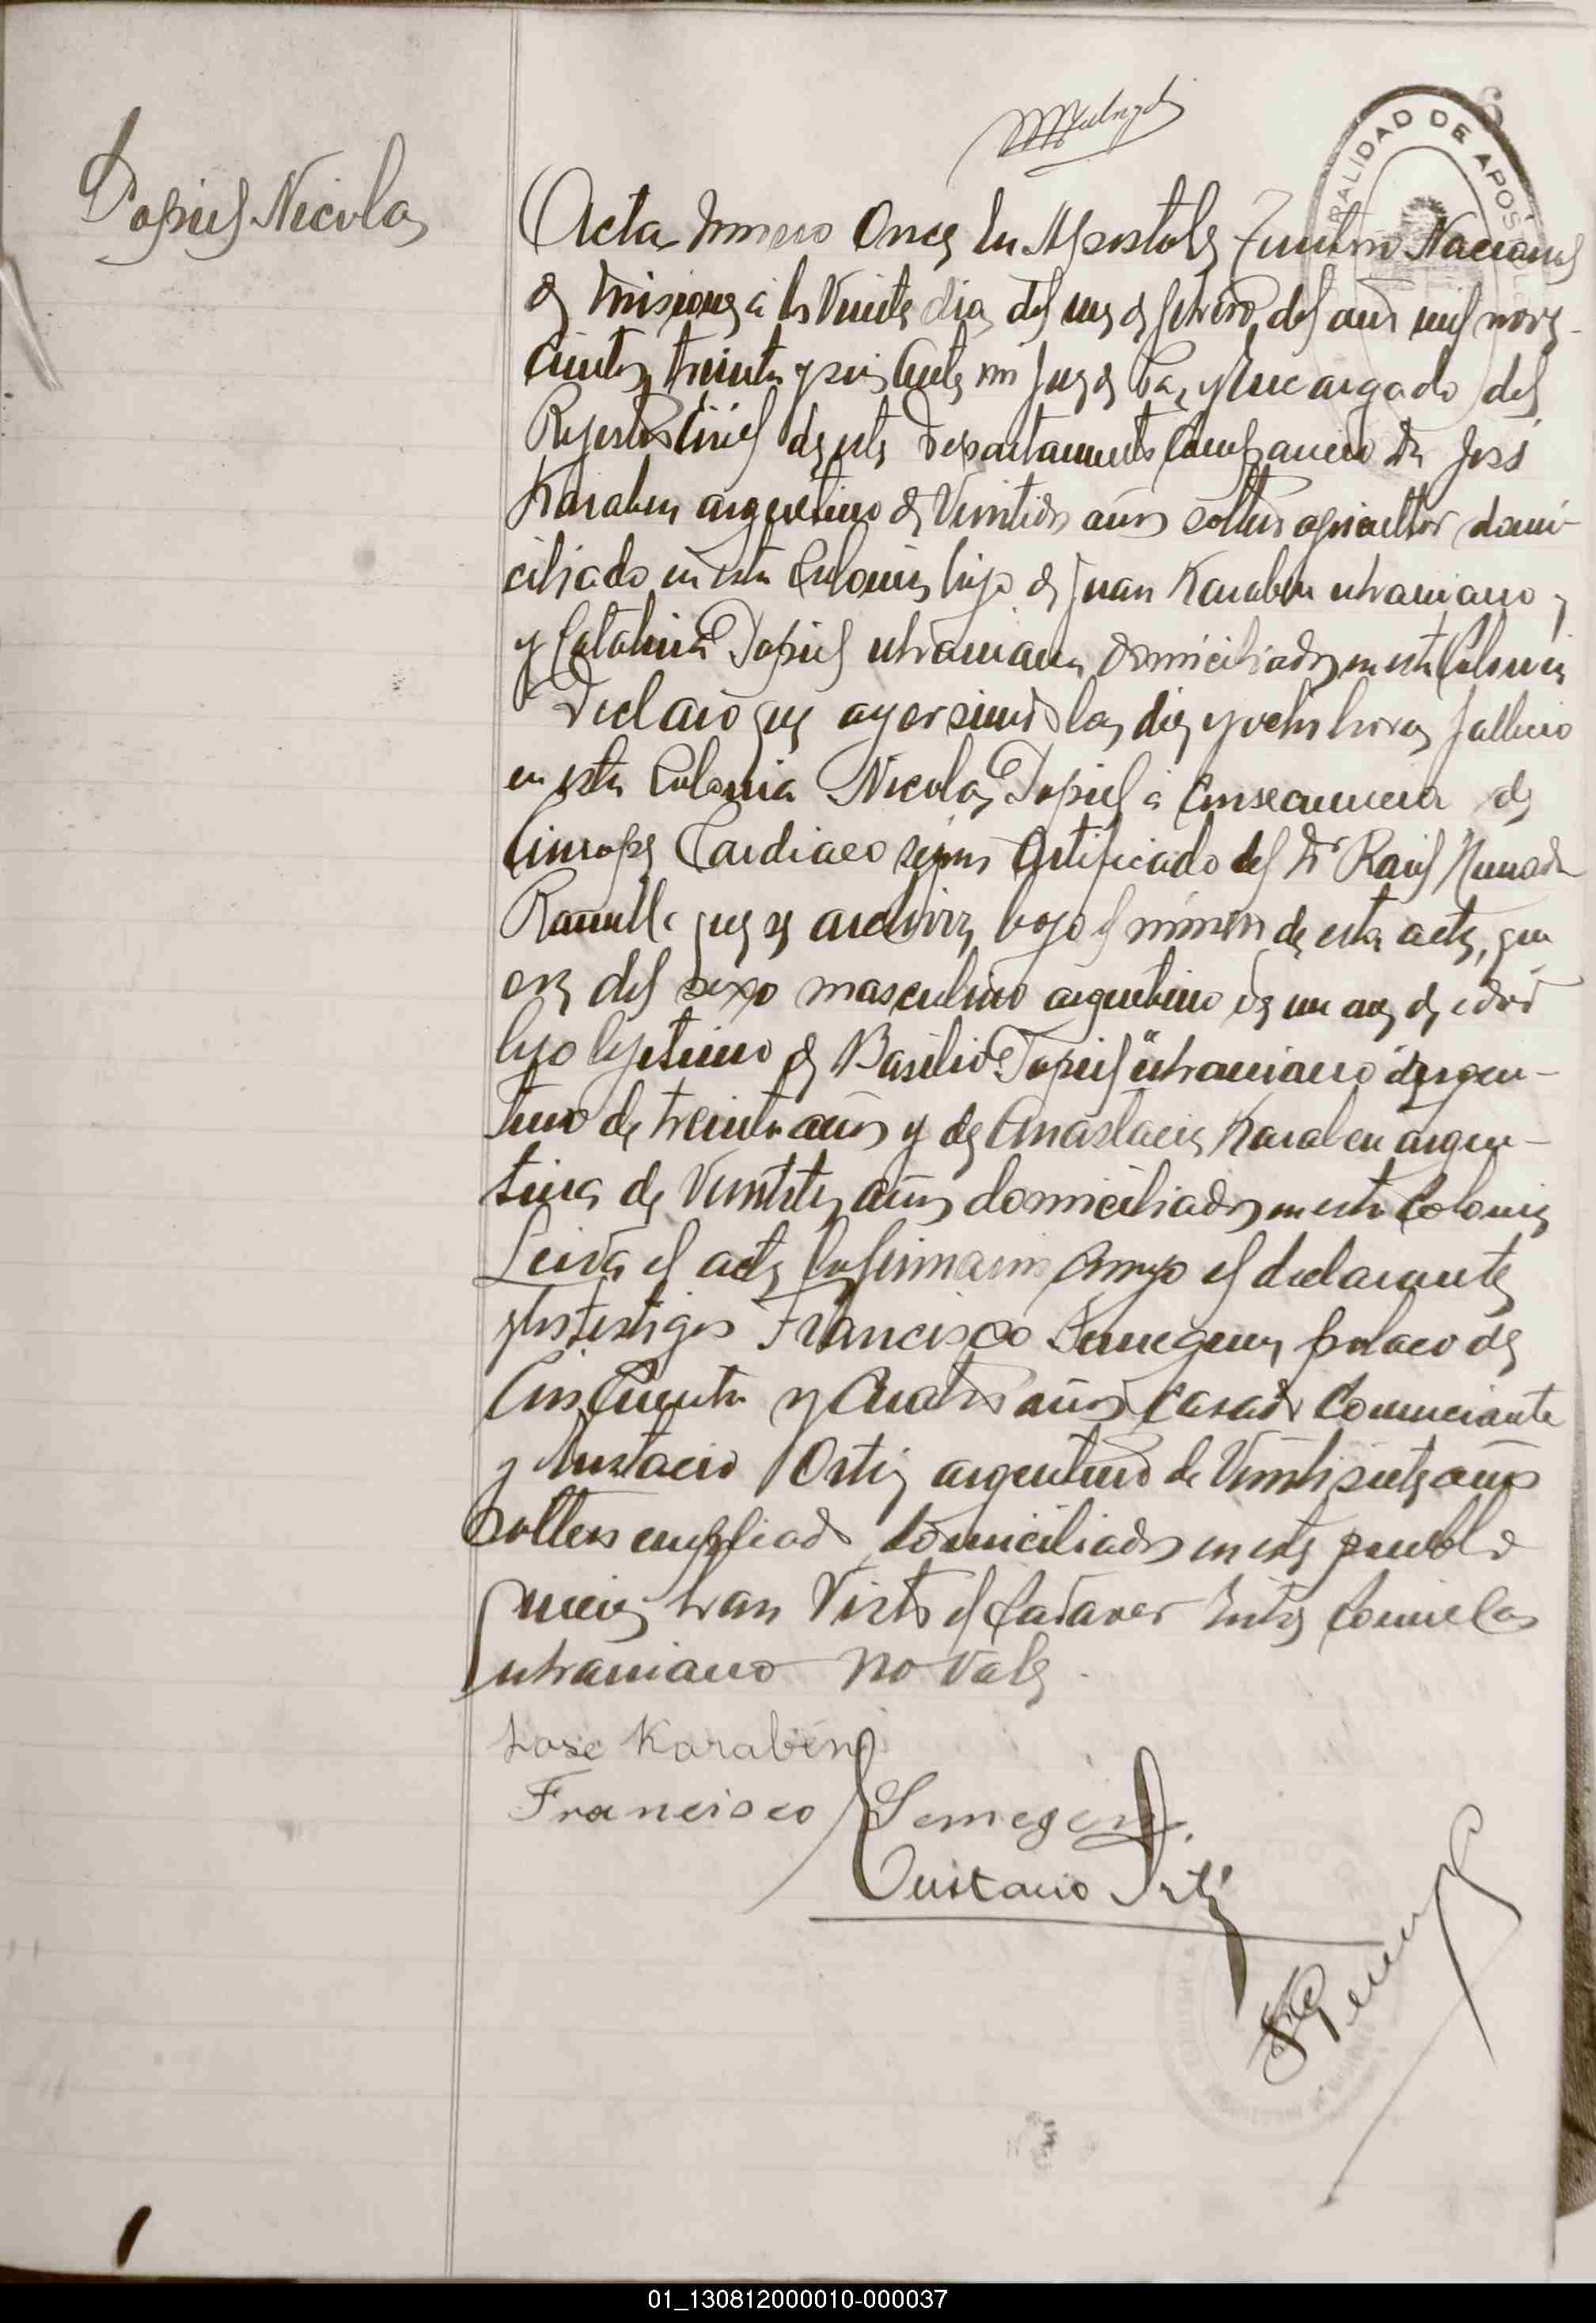 Dopiel Nicolas
MUNICIPALIDAD DE APOSTOLES
Acta número Once En Apostoles Territorio Nacional
de Misiones a los Veinte dias del mes de febrero del año mil nove-
cientos treinta y seis Ante mi Juez de Paz y Encargado del
Registro Civil de este Departamento Comparecio Dn José
Karaben argentino de Veintidos años soltero agricultor domi-
ciliado en esta Colonia hijo de Juan Karaben ukraniano
y Catalina Dopiel ukraniana domiciliados en esta Colonia
Declaro que ayer siendo las diez y ocho horas fallecio
en esta Colonia Nicolas Dopiel a consecuencia de
Sincope Cardiaco segun Certificado del Dr Raul
que se archiva bajo el número de esta acta, que
era del sexo masculino argentino de un año de edad
hijo lejitimo de Basilio Dopiel "ukraniano" argen-
tino de treinta años y de Anastacia Karaben argen-
tina de años domiciliados en esta Colonia
Leida el acta la firmaron conmigo el declarante
y los testigos Francisco Semegen polaco de
Cincuenta y Cuatro años casado Comerciante
y Eustacio Ortiz argentino de Veintisiete años
soltero empleado domiciliados en este pueblo
quienes han Visto el Cadaver Entre Comillas
ukraniano no Vale
Jose Karaben
Francisco Semegen.
Eustacio Ortiz
01_130812000010-000037